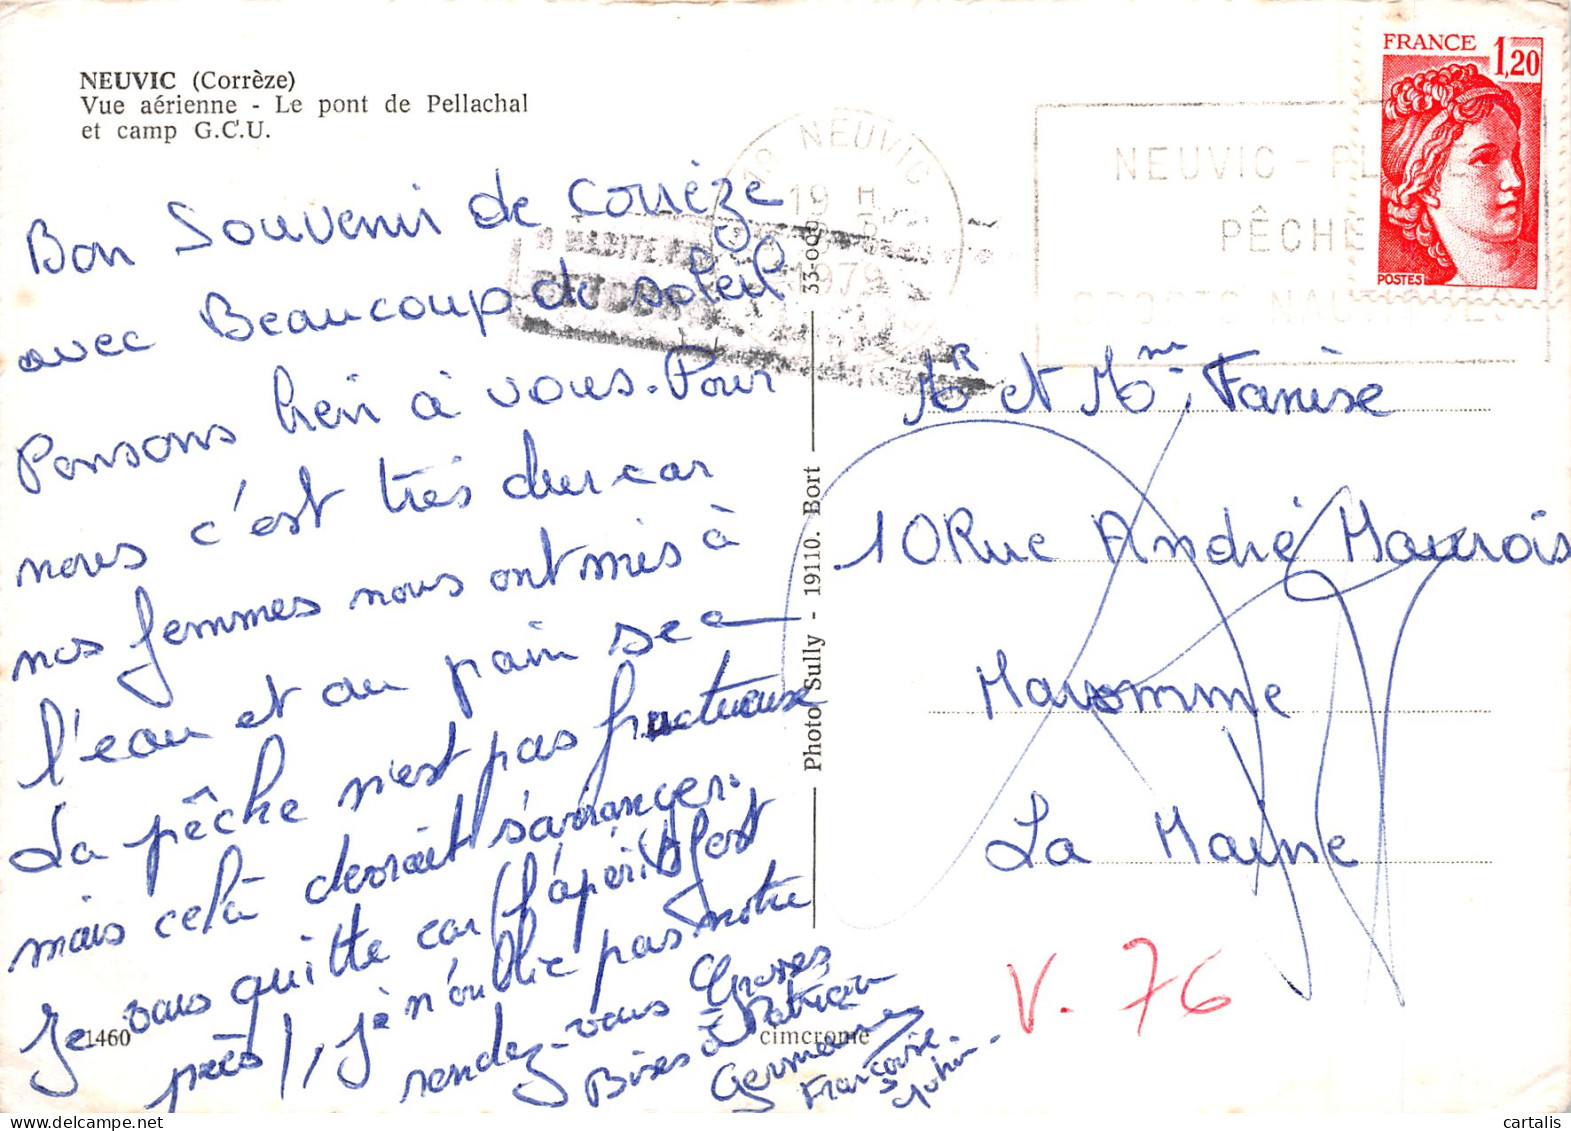 NEUVIC (Corrèze)
Vue aérienne - Le pont de Pellachal
et camp G.C.U.
Bon Souvenir de Corrèze
avec Beaucoup de soleil
Pensons bien à vous. Pour
nous c'est très dur car
nos femmes nous ont mis à
l'eau et au pain sec
La pêche n'est pas fructueuse
mais celà devrait s'arranger.
Je vous quitte car l'apéritif est
près!, je n'oublie pas notre
rendez-vous Grosses
Bises à
Germaine
Françoise
1460
cimcrome
Photo Sully - 19110. Bort
33-009
NEUVIC
19 H
1979
NEUVIC - PL
PÊCHE
SPORTS NAUTIQUES
FRANCE 1,20
POSTES
Mr et Mme Fanise
10 Rue André Maurois
Maromme
La Maine
V. 76
cartalis
delcampe.net